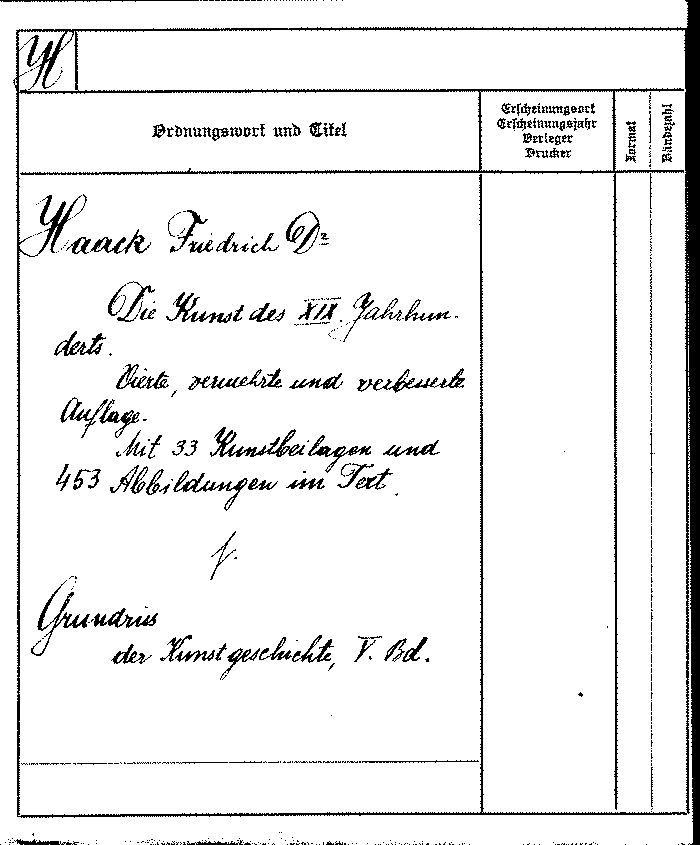 H
Ordnungswort und Titel
Erscheinungsort
Erscheinungsjahr
Verleger
Drucker
Format
Bändezahl
Haack Friedrich Dr
Die Kunst des XIX. Jahrhun-
derts.
Vierte, vermehrte und verbesserte
Auflage.
Mit 33 Kunstbeilagen und
453 Abbildungen im Text.
f.
Grundriss
der Kunstgeschichte, V. Bd.